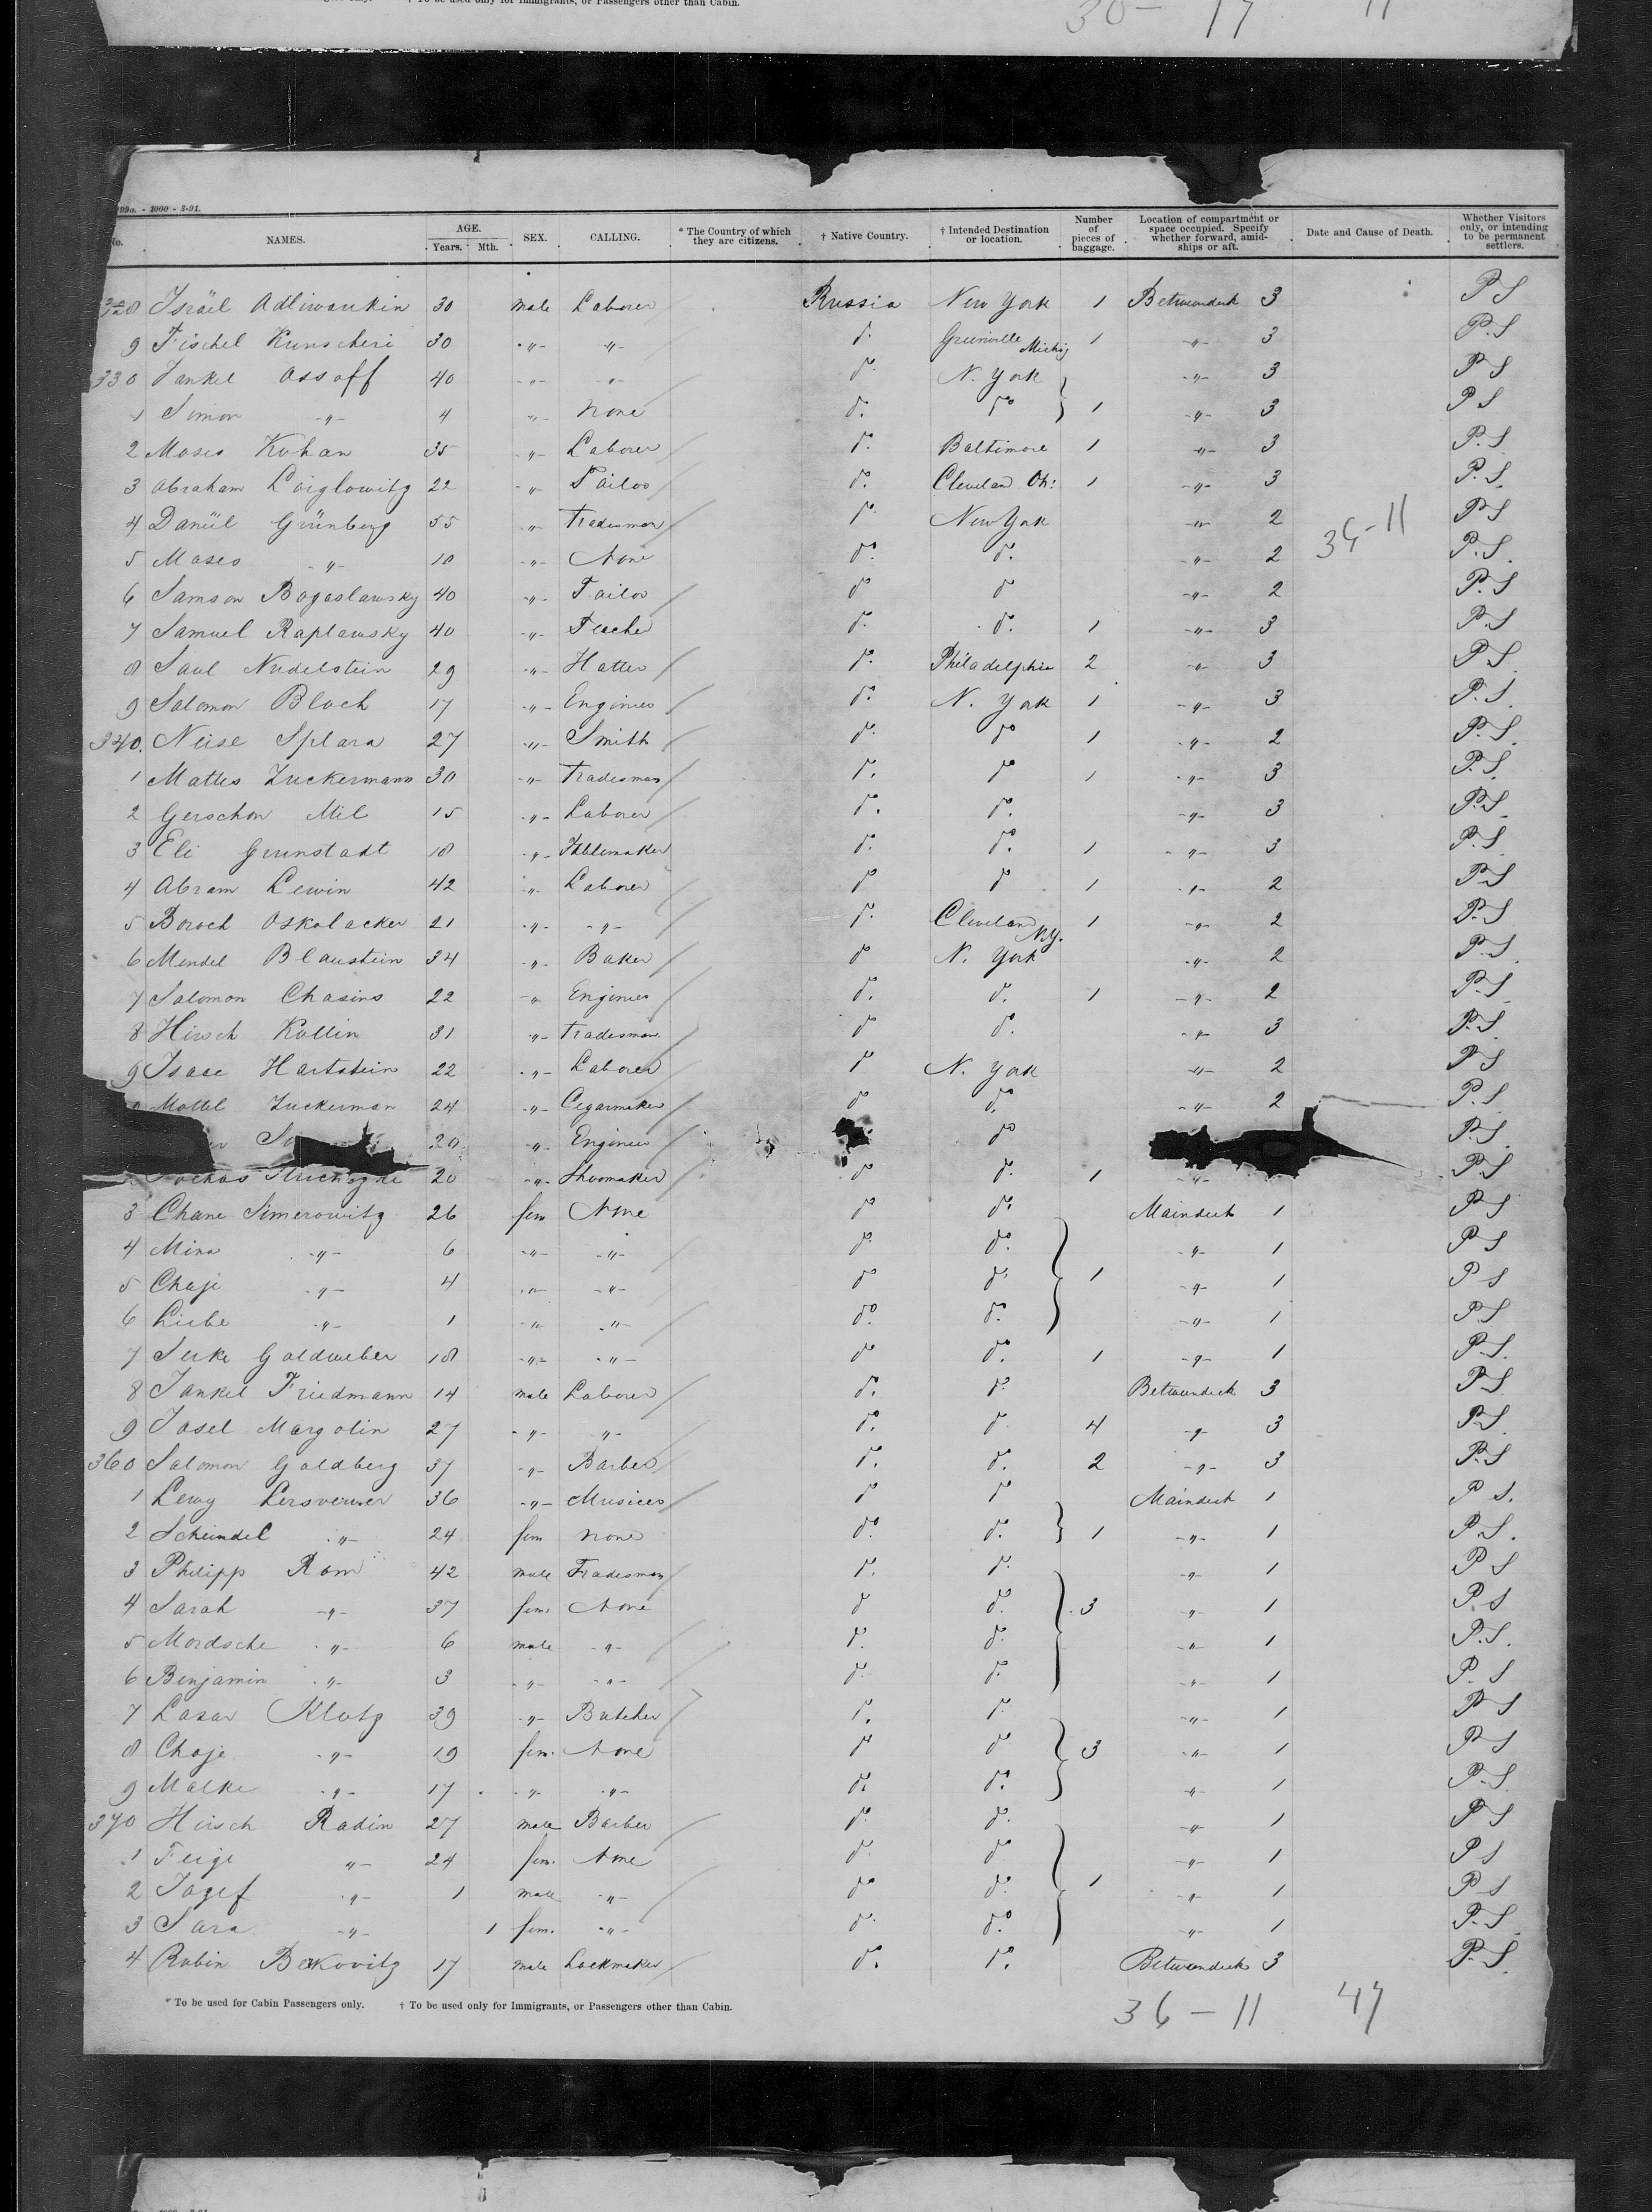 † To be used only for Immigrants, or Passengers other than Cabin.
30 - 17 11
99a. - 1000 - 3-91.
No. NAMES. AGE. Years. Mth. SEX. CALLING. * The Country of which they are citizens. † Native Country. † Intended Destination or location. Number of pieces of baggage. Location of compartment or space occupied. Specify whether forward, amidships or aft. Date and Cause of Death. Whether Visitors only, or intending to be permanent settlers.
328 Israel Adliwankin 30 male Laborer Russia New York 1 Betweendeck 3 PS
9 Fischel Kunscheri 30 -"- -"- do. Greenville Michig 1 -"- 3 P.S
330 Jankel Ossoff 40 -"- -"- do. N. York -"- 3 PS
1 Simon -"- 4 -"- None do. do } 1 -"- 3 PS
2 Moses Kohan 35 -"- Laborer do. Baltimore 1 -"- 3 P.S
3 Abraham Loiglowitz 22 -"- Tailor do. Cleveland Oh: 1 -"- 3 P.S.
4 Daniil Grünberg 55 -"- Tradesman do. New York -"- 2 PS
34-11
5 Moses -"- 10 -"- None do. do. -"- 2 P.S.
6 Samson Bogaslawsky 40 -"- Tailor do do -"- 2 P.S
7 Samuel Raplawsky 40 -"- Teacher do. do. 1 -"- 3 P.S
8 Saul Nudelstein 29 -"- Hatter do. Philadelphia 2 -"- 3 P.S.
9 Salomon Bloch 17 -"- Engineer do. N. York 1 -"- 3 P.S.
340. Neise Splara 27 -"- Smith do. do 1 -"- 2 P.S.
1 Mattes Zuckermann 30 -"- Tradesman do. do 1 -"- 3 P.S.
2 Gerschon Mil 15 -"- Laborer do. do. -"- 3 P.S.
3 Eli Grunstadt 18 -"- do. do. 1 -"- 3 P.S.
4 Abram Lewin 42 -"- Laborer do do 1 -"- 2 P.S
5 Boroch Oskolacker 21 -"- -"- do. Cleveland N.Y. 1 -"- 2 P.S
6 Mendel Blaustein 34 -"- Baker do N. York -"- 2 P.S.
7 Salomon Chasins 22 -"- Engineer do. do. 1 -"- 2 P.S
8 Hirsch Kollin 31 -"- Tradesman do do. -"- 3 P.S.
9 Isaac Hartstein 22 -"- Laborer do N. York -"- 2 PS
Mottel Zuckerman 24 -"- Cegarmaker do do. -"- 2 P.S
20 -"- Engineer do P.S.
20 -"- Shoemaker do do. 1 -"- P.S
3 Chane Simerowitz 26 fem None do do. Maindeck 1 PS
4 Mina -"- 6 -"- -"- do. do. -"- 1 PS
5 Chaje -"- 4 -"- -"- do do. } 1 -"- 1 PS
6 Liebe -"- 1 -"- -"- do. do. -"- 1 PS
7 Serke Goldweber 18 -"- -"- do do. 1 -"- 1 P.S.
8 Jankel Friedmann 14 male Laborer do. do. Betweendeck 3 PS.
9 Josel Margolin 27 -"- -"- do. do. 4 -"- 3 P.S.
360 Salomon Goldberg 37 -"- Barber do. do. 2 -"- 3 P.S
1 Lewy Lersverver 36 -"- Musices do do Maindeck 1 P S.
2 Scheindel -"- 24 fem none do. do. } 1 -"- 1 P.S.
3 Philipp Rom 42 male Tradesman do. do. -"- 1 PS
4 Sarah -"- 37 fem. None do do. } 3 -"- 1 P.S
5 Mordsche -"- 6 male -"- do. do. -"- 1 P.S.
6 Benjamin -"- 3 -"- -"- do. do. -"- 1 P.S
7 Lasar Klotz 39 -"- Butcher do. do. -"- 1 PS
8 Choje -"- 19 fem. None do do } 3 -"- 1 P.S
9 Malke -"- 17 -"- -"- do. do. -"- 1 P.S.
370 Hirsch Radin 27 male Barber do. do. -"- 1 PS
1 Feige -"- 24 fem. None do. do -"- 1 PS
2 Jozef -"- 1 male -"- do do. } 1 -"- 1 PS
3 Sara -"- 1 fem. -"- do. do. -"- 1 P.S.
4 Rubin Berkovitz 17 male Lockmaker do. do. Betweendeck 3 P.S.
* To be used for Cabin Passengers only. † To be used only for Immigrants, or Passengers other than Cabin.
36 - 11 47